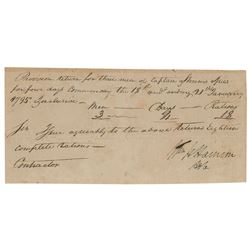 Provision return for three men of Captain
for four days Commencing the 18th and ending 21st January
1795 Inclusive — Men — Days — Rations
3 — 4 — 18
Sir Issue agreeably to the above Return Eighteen
complete Rations —
Contractor
Wm H Harrison